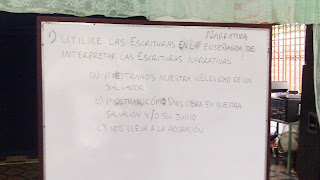 NARRATIVA
1) UTILICE LAS ESCRITURAS EN LA ENSEÑANZA DE
INTERPRETAR LAS ESCRITURAS NARRATIVAS
a) MOSTRANOS NUESTRA NECESIDAD DE UN
SALVADOR
b) MOSTRAR CÓMO DIOS OBRA EN NUESTRA
SALVACIÓN Y/O SU JUICIO
c) NOS LLEVA A LA ADORACIÓN